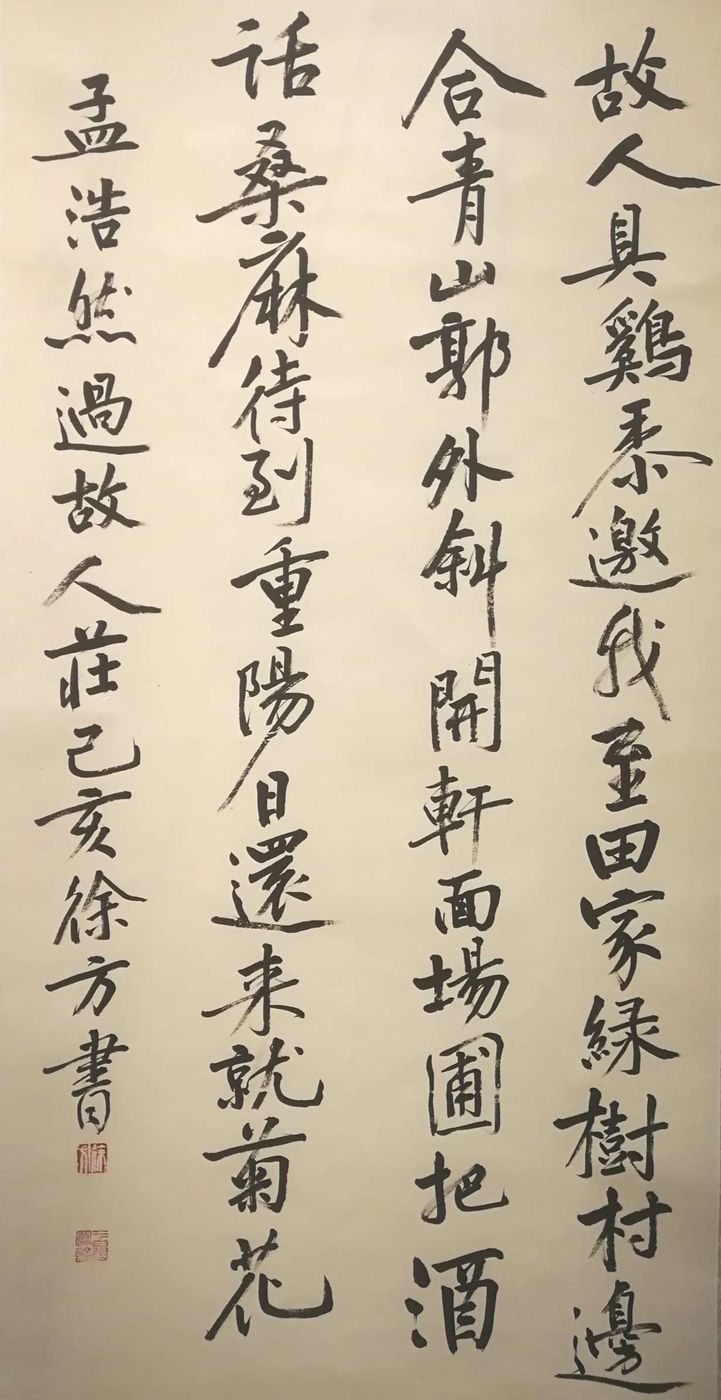 故人具鷄黍邀我至田家緑樹村邊
合青山郭外斜開軒面場圃把酒
话桑麻待到重陽日還来就菊花
孟浩然過故人莊己亥徐方書